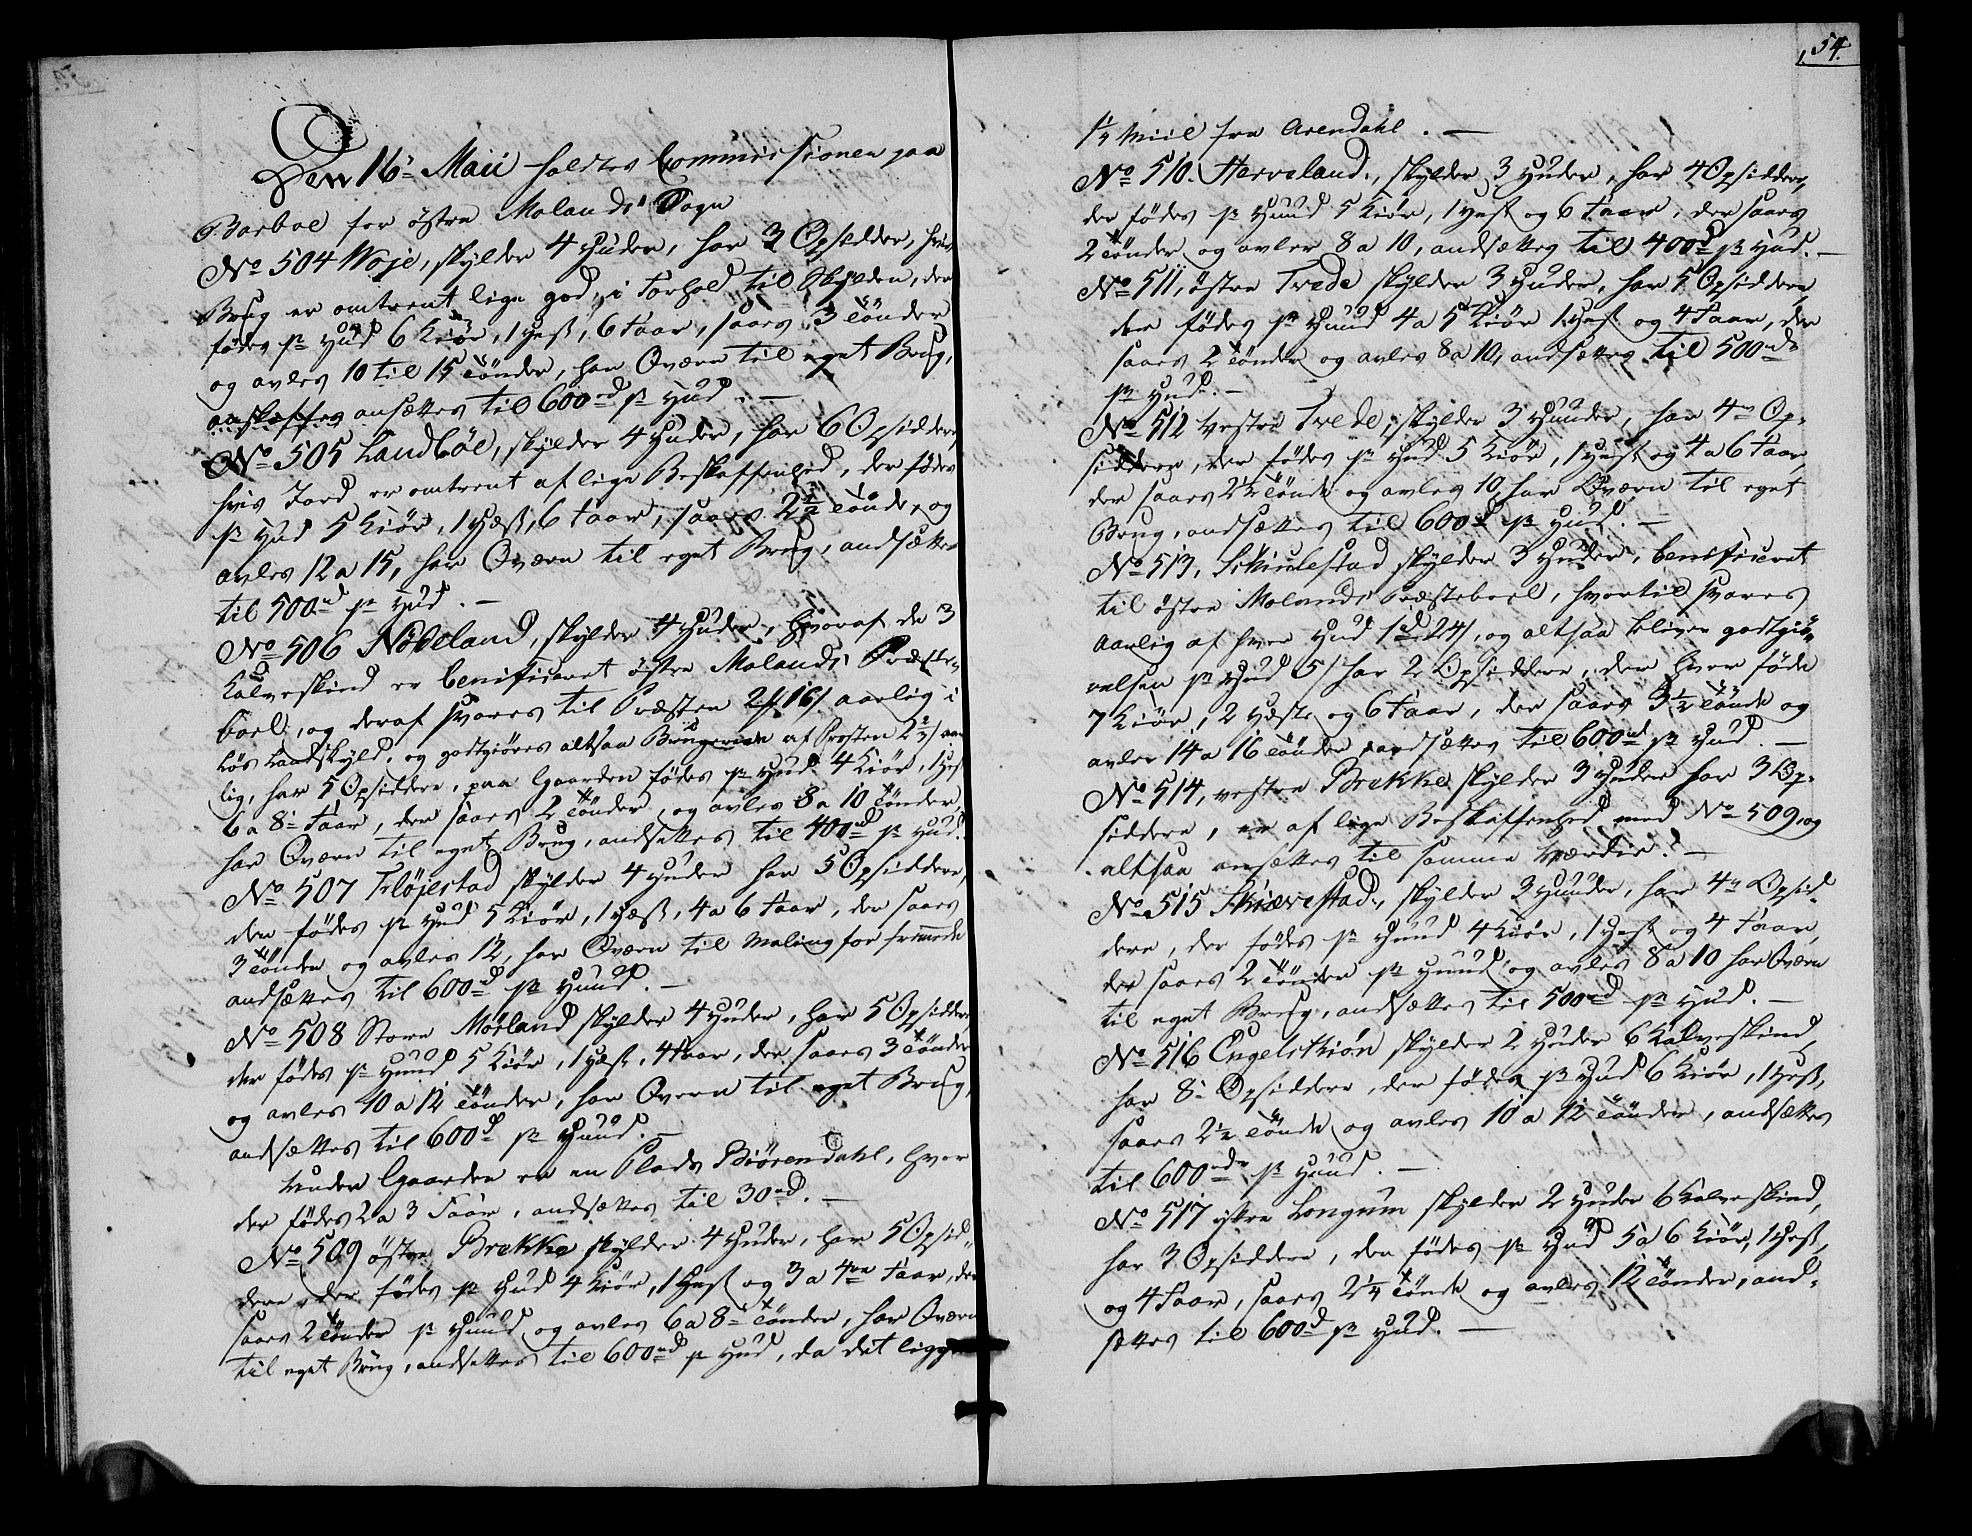 Den 16de Maii holdtes Commissionen paa
Barboe for östre Molands Sogn
No 504 Woje, skylder 4 Huder, har 3 Opsidder, hvis
Brug er omtrent lige god, i Forhold til Skylden, der
födes pr Hud 6 Kiör, 1 Hest, 6 Faar, saaes 3 Tönder
og avles 10 til 15 Tönder, har Qværn til eget Brug,
ansættes til 600rd pr Hud. —
No 505 Landböe, skylder 4 Huder, har 6 Opsiddere
hvis Jord er omtrent af lige Beskaffenhed, der födes
pr Hud 5 Kiör, 1 Hest, 6 Faar, saaes 2½ Tönde, og
avles 12 a 15, har Qværn til eget Brug, andsættes
til 500rd pr Hud. —
No 506 Nödeland, skylder 4 Huder, hvoraf de 3
Kalveskind er benificeret östre Molands Præste-
boel, og deraf svares til Præsten 2rd 16s aarlig i
Lös Landskyld, og godtgiöres altsaa Brugerne af Præsten aar-
lig, har 5 Opsiddere, paa Gaarden födes pr Hud 4 Kiör, 1 Hest
6 a 8 Faar, der saaes 2 Tönder og avles 8 a 10 Tönder,
har Qværn til eget Brug, andsættes til 400rd pr Hud.
No 507 Flöjestad skylder 4 Huder har 5 Opsiddere,
der födes pr Hud 5 Kiör, 1 Hest, 4 a 6 Faar, der saaes
3 Tönder og avles 12, har Qværn til Maling for fremmede
andsættes til 600rd pr Huud. —
No 508 Store Mörland skylder 4 Huder, har 5 Opsiddere
der födes pr Huud 5 Kiör, 1 Hest, 4 Faar, der saaes 3 Tönder
og avles 10 a 12 Tönder, har Qværn til eget Brug,
andsættes til 600rd pr Huud. —
Under Gaarden er en Plads Biörendahl, hvor
der födes 2 a 3 Faar, andsættes til 30rd. —
No 509 östre Brekke skylder 4 Huder, har 5 Opsid-
dere, der födes pr Hud 4 Kiör, 1 Hest og 3 a 4re Faar, der
saaes 2 Tönder pr Huud og avles 6 a 8 Tönder, har Qværn
til eget Brug, andsættes til 600rd pr Hud, da det ligger
54.
¼ Miil fra Arendahl. —
No 510. Herveland., skylder 3 Huder, har 4 Opsiddere,
der födes pr Huud 5 Kiör, 1 Hest og 6 Faar, der saaes
2 Tönder og avles 8 a 10, andsættes til 400rd pr Hud. —
No 511, östre Trede skylder 3 Huder, har 5 Opsiddere,
der födes pr Huud 4 a 5 Kiör 1 Hest og 4 Faar, der
saaes 2 Tönder og avles 8 a 10, andsættes til 500rdr
pr Hud. —
No 512 Vestre Trede, skylder 3 Huuder, har 4re Op-
siddere, der födes pr Hud 5 Kiör, 1 Hest og 4 a 6 Faar,
der saaes 2½ Tönde og avles 10, har Qværn til eget
Brug, andsættes til 600rd pr Hud. —
No 513, Skiulestad skylder 3 Huder, benificeret
til östre Molands Præsteboel, hvortil svares
Aarlig af hver Hud 1rd 24s, og altsaa bliver godtgiö-
relsen pr Hud 5s har 2 Opsiddere, der hver föde
7 Kiör, 2 Heste og 6 Faar, der saaes 3½ Tönde og
avles 14 a 16 Tönder andsættes til 600rd pr Hud. —
No 514, vestre Brekke skylder 3 Huder har 3 Op-
siddere, er af lige Beskaffenhed med No 509, og
altsaa ansættes til samme Værdie. —
No 515 Skiærestad., skylder 3 Huuder, har 4re Opsid-
dere, der födes pr Huud 4 Kiör, 1 Hest og 4 Faar,
der saaes 2 Tönder pr Huud og avles 8 a 10 har Qværn
til eget Brug, andsættes til 500rd pr Hud. —
No 516 Engelskiön skylder 2 Huder 6 Kalveskind,
har 8 Opsiddere, der födes pr Hud 6 Kiör, 1 Hest,
saaes 2½ Tönde og avles 10 a 12 Tönder, andsættes
til 600rdr pr Huud. —
No 517 östre Longum skylder 2 Huder 6 Kalveskind,
har 3 Opsiddere, der födes pr Hud 5 a 6 Kiör, 1 Hest,
og 4 Faar, saaes 2¼ Tönde og avles 12 Tönder, and-
sættes til 600rd pr Hud. —